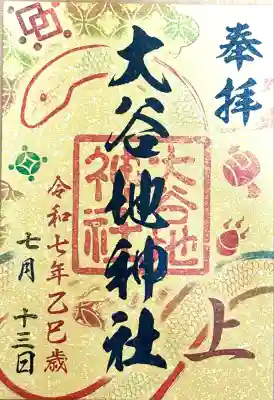 奉拝
大谷地神社
大谷地
神社
上
令和七年乙巳歳
七月 十三日